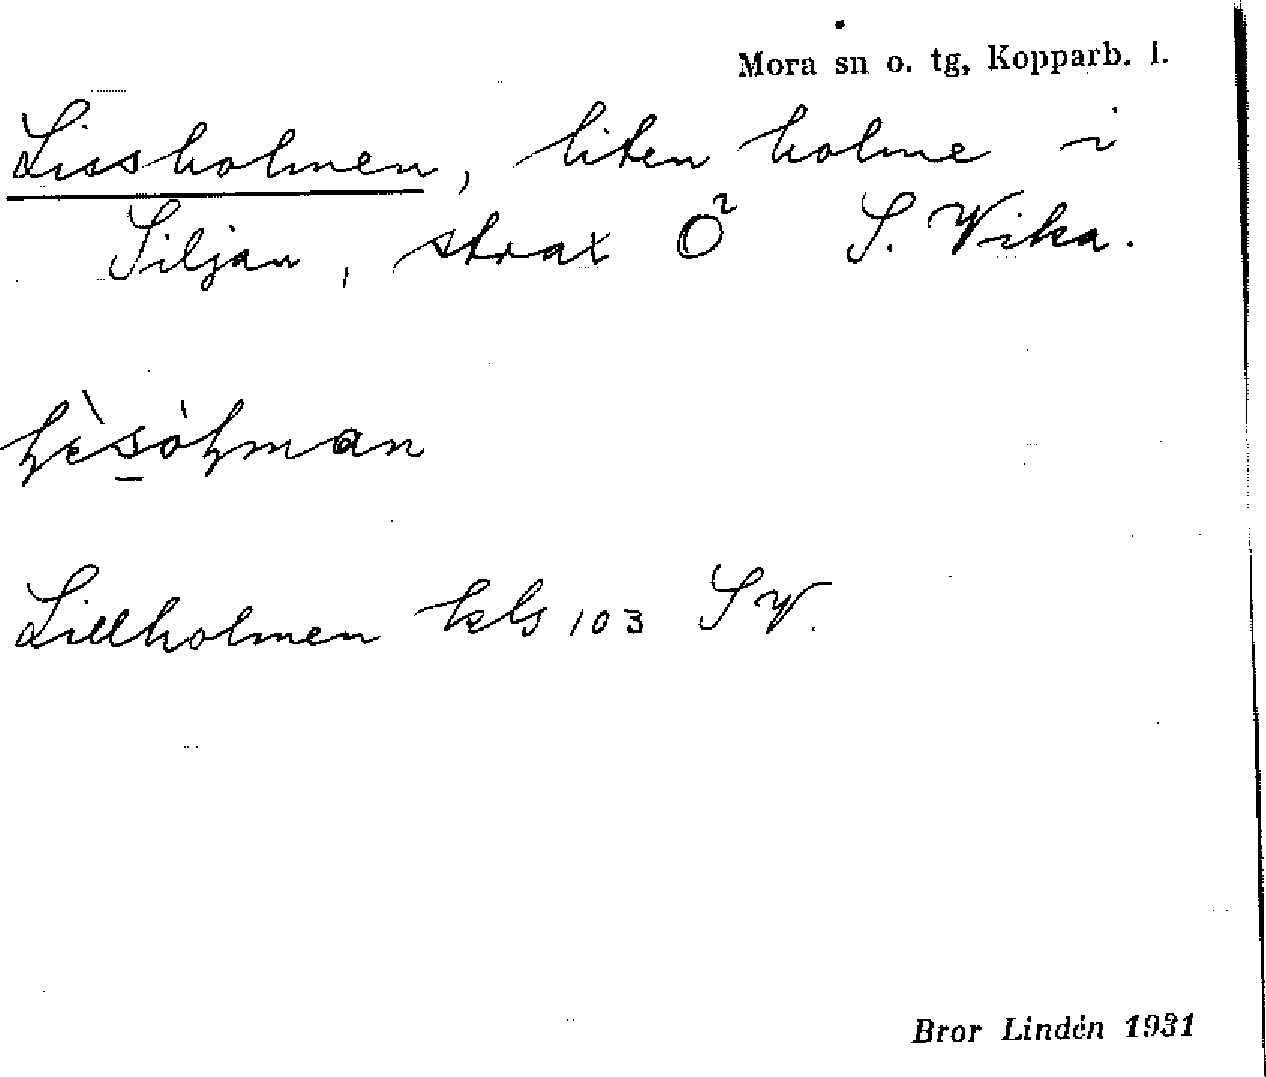 Mora sn o. tg, Kopparb. l.
Lissholmen, liten holme i
Siljan, strax Ö S. Wika.
Lillholmen kls 103 SW.
Bror Lindén 1931